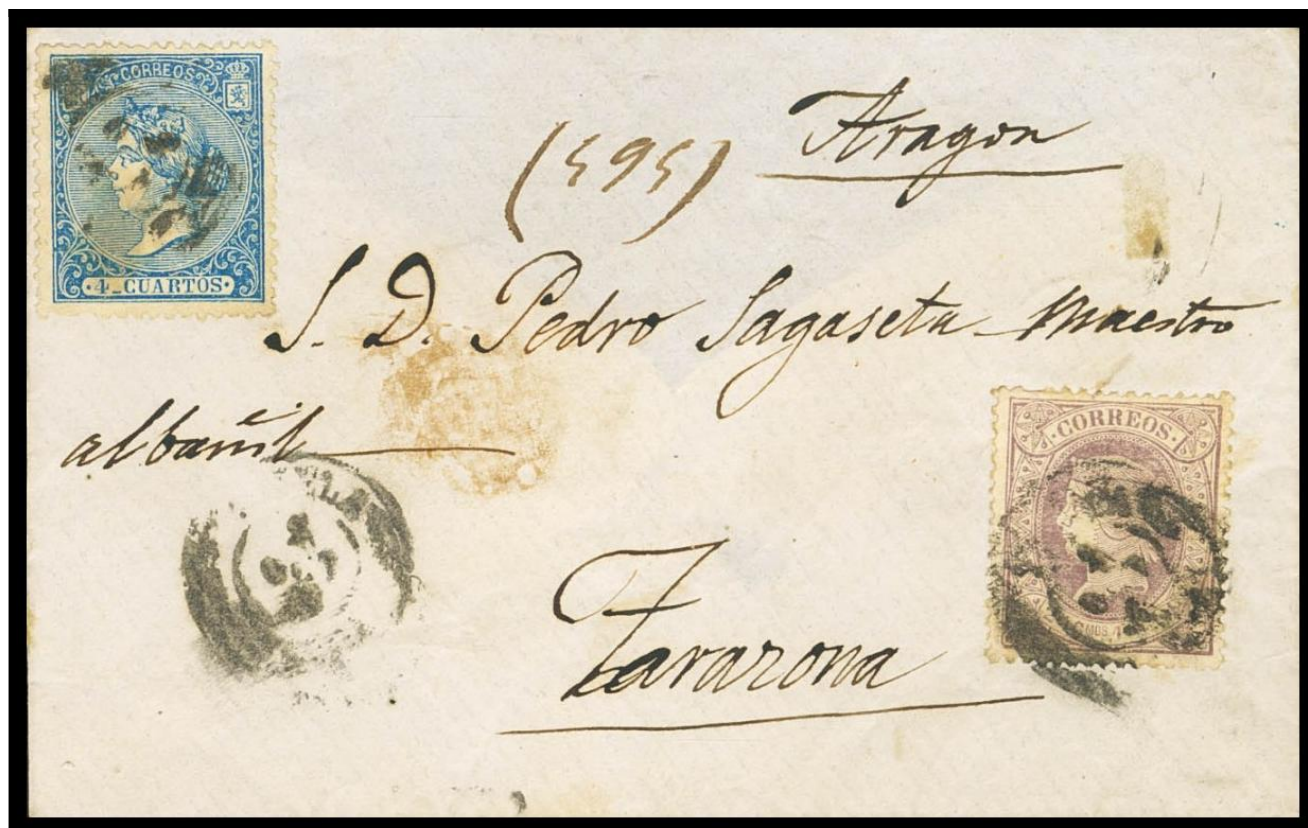 CORREOS
4_CUARTOS
(595) Aragon
S. D. Pedro Sagaseta Maestro
albañil
CORREOS
Tarazona